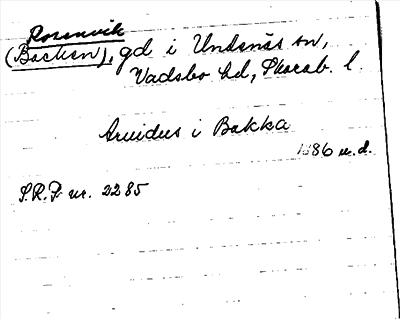 Rosenvik
(Backen), gd i Undenäs sn,
Vadsbo hd, Skarab. l.
Arvidus i Bakka
1386 u.d.
S.R.P. nr. 2285